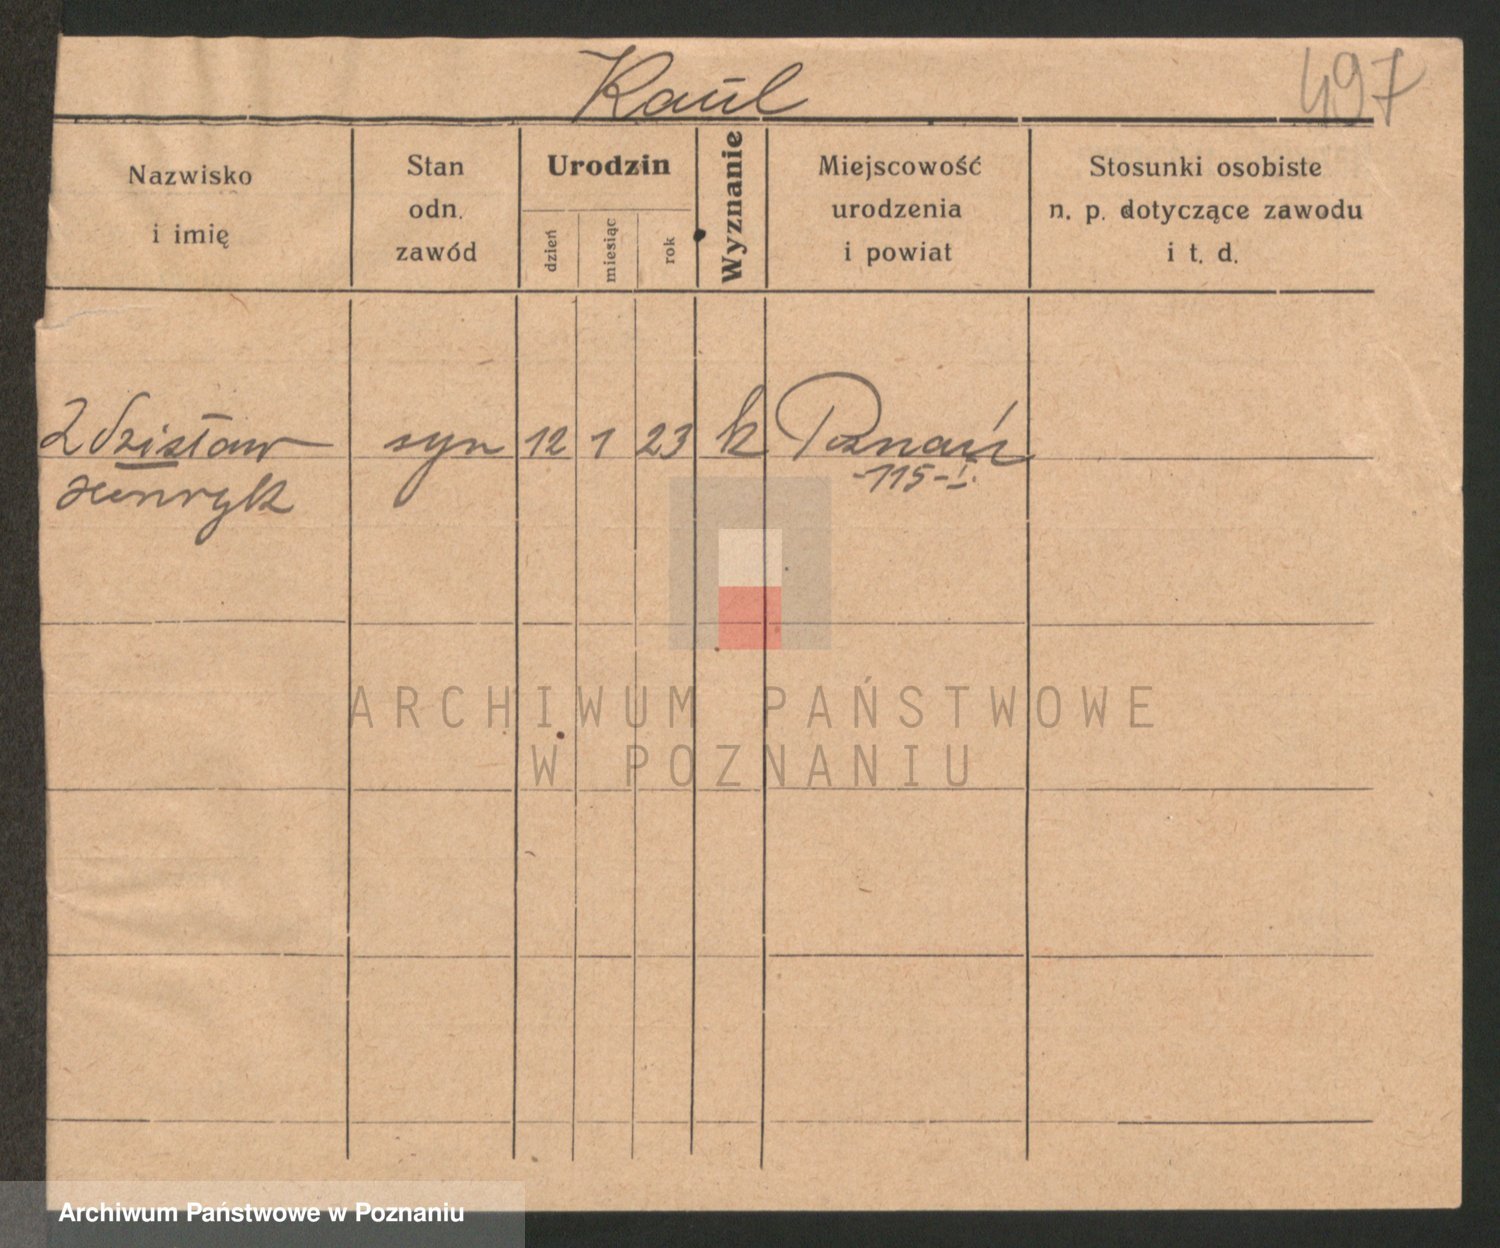 Kaul
497
Nazwisko
i imię
Stan
odn.
zawód
Urodzin
dzień
miesiąc
rok
Wyznanie
Miejscowość
urodzenia
i powiat
Stosunki osobiste
n. p. dotyczące zawodu
i t. d.
Zdzisław syn 12 1 23 k Poznań
Henryk -115-I.
ARCHIWUM PAŃSTWOWE
W POZNANIU
Archiwum Państwowe w Poznaniu